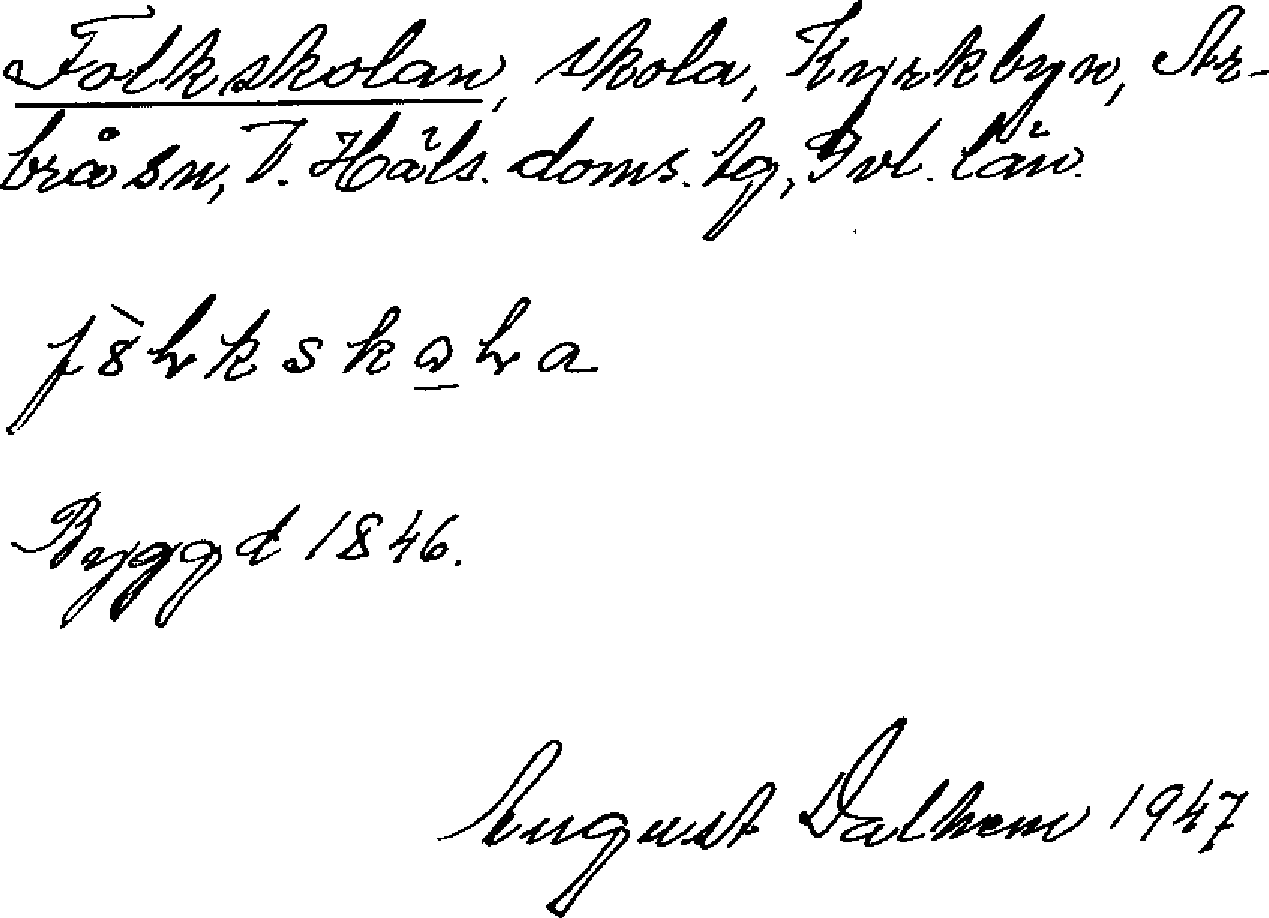 Folkskolan, skola, Kyrkbyn, Ar-
brå sn, V. Häls. doms. tg, Gvl. län.
Byggd 1846.
August Dalhem 1947